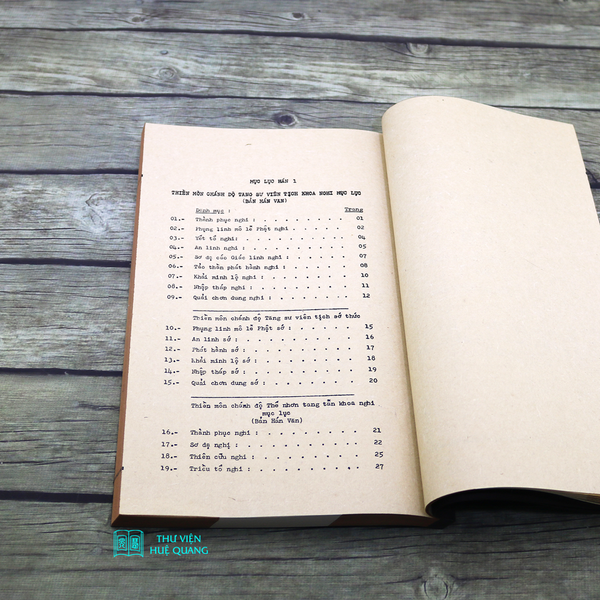 MỤC LỤC HÁN 1
THIỀN MÔN CHÁNH ĐỘ TANG SƯ VIÊN TỊCH KHOA NGHI MỤC LỤC
(BẢN HÁN VĂN)
Danh mục : Trang
01.- Thành phục nghi : . . . . . . . 01
02.- Phụng linh mô lễ Phật nghi . . . . 02
03.- Tết tổ nghi: . . . . . . . . 04
04.- An linh nghi : . . . . . . . 05
05.- Sơ dạ cáo Giác linh nghi : . . . . 07
06.- Tảo thần phát hành nghi : . . . . 08
07.- Khải minh lộ nghi : . . . . . . 10
08.- Nhập tháp nghi : . . . . . . 11
09.- Quải chơn dung nghi : . . . . . 12
Thiền môn chánh độ Tăng sư viên tịch sớ thức
10.- Phụng linh mô lễ Phật sớ : . . . . 15
11.- An linh sớ : . . . . . . . 16
12.- Phát hành sớ : . . . . . . . 17
13.- Khải minh lộ sớ : . . . . . . 18
14.- Nhập tháp sớ : . . . . . . . 19
15.- Quải chơn dung sớ : . . . . . . 20
Thiền môn chánh độ Thế nhơn tang tẩn khoa nghi
mục lục
(Bản Hán Văn)
16.- Thành phục nghi : . . . . . . 21
17.- Sơ dạ nghi : . . . . . . . 22
18.- Thiên cữu nghi : . . . . . . 25
19.- Triều tổ nghi : . . . . . . . 27
THƯ VIỆN
HUỆ QUANG